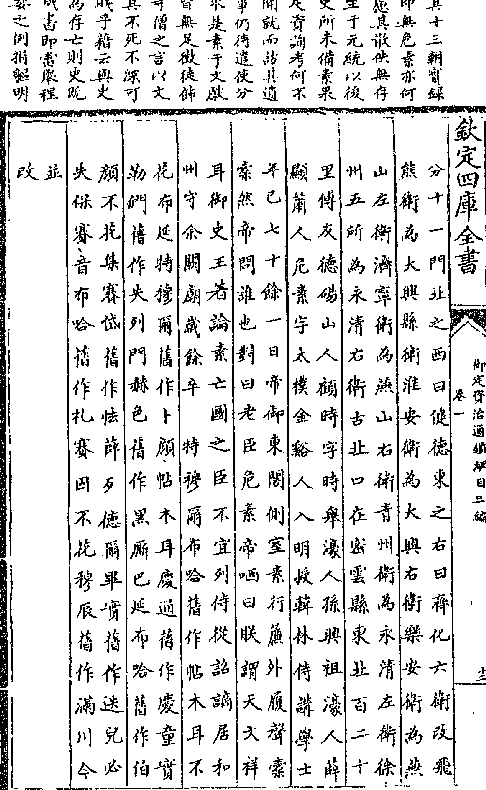 其十三朝實録
即無危素亦何
慮其散佚無存
至于元統以後
史所未備素果
足資諮考何不
聞就而諮其遺
事仍待遣使分
求是素于文獻
皆無足徵徒飾
寺僧之言以文
其不死不深可
乎藉云與史
為存亡則史既
成書即當嚴
之例捐軀明
欽定四庫全書
御定資治通鑑綱目三編
卷一
十三
分十一門北之西曰健德東之右曰齊化六衛改飛
熊衛為大興縣衛淮安衛為大興右衛樂安衛為燕
山左衛濟寧衛為燕山右衛青州衛為永清左衛徐
州五所為永清右衛古北口在密雲縣東北百二十
里傅友德碭山人顧時字時舉濠人孫興祖濠人薛
顯蕭人危素字太樸金谿人入明授翰林侍講學士
年已七十餘一日帝御東閣側室素行簾外履聲橐
橐然帝問誰也對曰老臣危素帝哂曰朕謂文天祥
耳御史王著論素亡國之臣不宜列侍從詔謫居和
州守余闕廟歲餘卒 特穆爾布哈舊作帖木耳不
花布延特穆爾舊作卜顔帖木耳慶通舊作慶童實
勒們舊作失列門赫色舊作黑厮巴延布哈舊作伯
顔不花集賽岱舊作怯薛歹德爾畢實舊作迭兒必
失保賽音布哈舊作扎賽因不花穆辰舊作滿川今
並
改